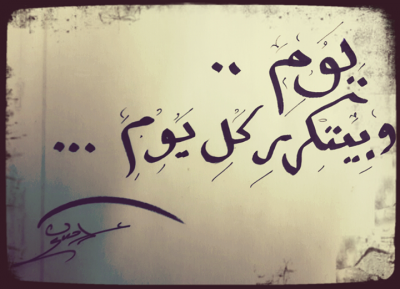 يَوُمَ ..
وَبِيتْتِكَررِ كُلِ يَوُمِ ...